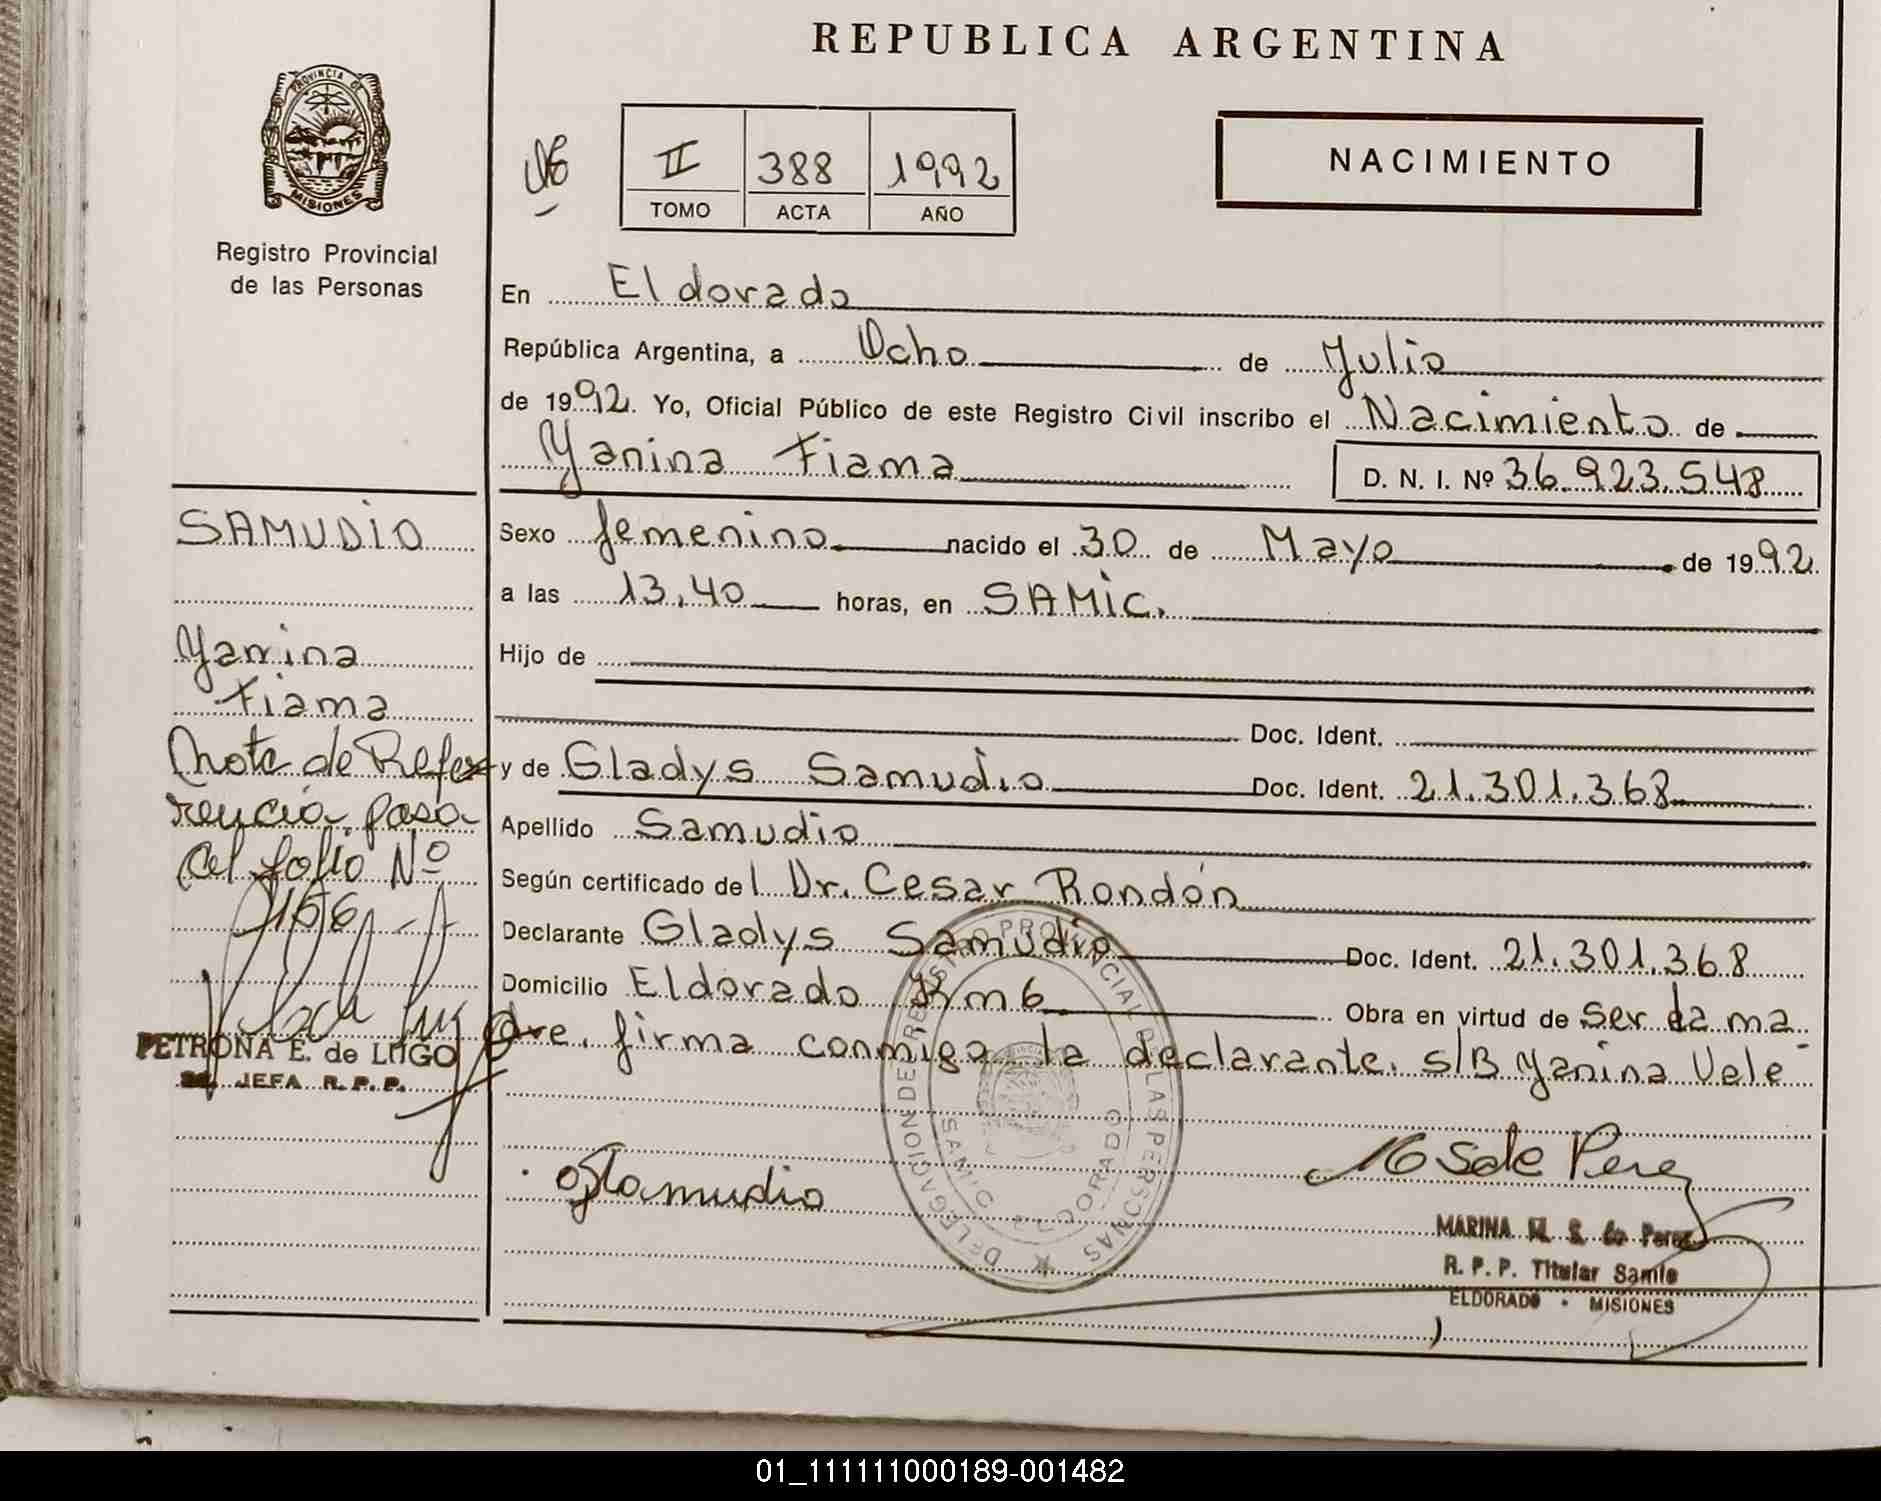 REPUBLICA ARGENTINA
PROVINCIA DE
MISIONES
Registro Provincial
de las Personas
II 388 1992
TOMO ACTA AÑO
NACIMIENTO
En Eldorado
República Argentina, a Ocho de Julio
de 1992. Yo, Oficial Público de este Registro Civil inscribo el Nacimiento de
Yanina Fiama
D. N. I. Nº 36.923.548
Sexo femenino nacido el 30 de Mayo de 1992
a las 13,40 horas, en SAMIC.
Hijo de
Doc. Ident.
y de Gladys Samudio Doc. Ident. 21.301.368
Apellido Samudio
Según certificado del Dr. Cesar Rondón
Declarante Gladys Samudio Doc. Ident. 21.301.368
Domicilio Eldorado Km 6 Obra en virtud de ser la ma
dre, firma conmigo la declarante. S/B Yanina Vale
SAMUDIO
Yanina
Fiama
Nota de Refe
rencia pasa
al folio Nº
166
PETRONA E. de LUGO
JEFA R. P. P.
DELEGACION DE REGISTRO PROVINCIAL DE LAS PERSONAS
SAMIC ELDORADO
GSamudio
MS de Perez
MARINA M. S. de Perez
R. P. P. Titular Samic
ELDORADO - MISIONES
01_111111000189-001482